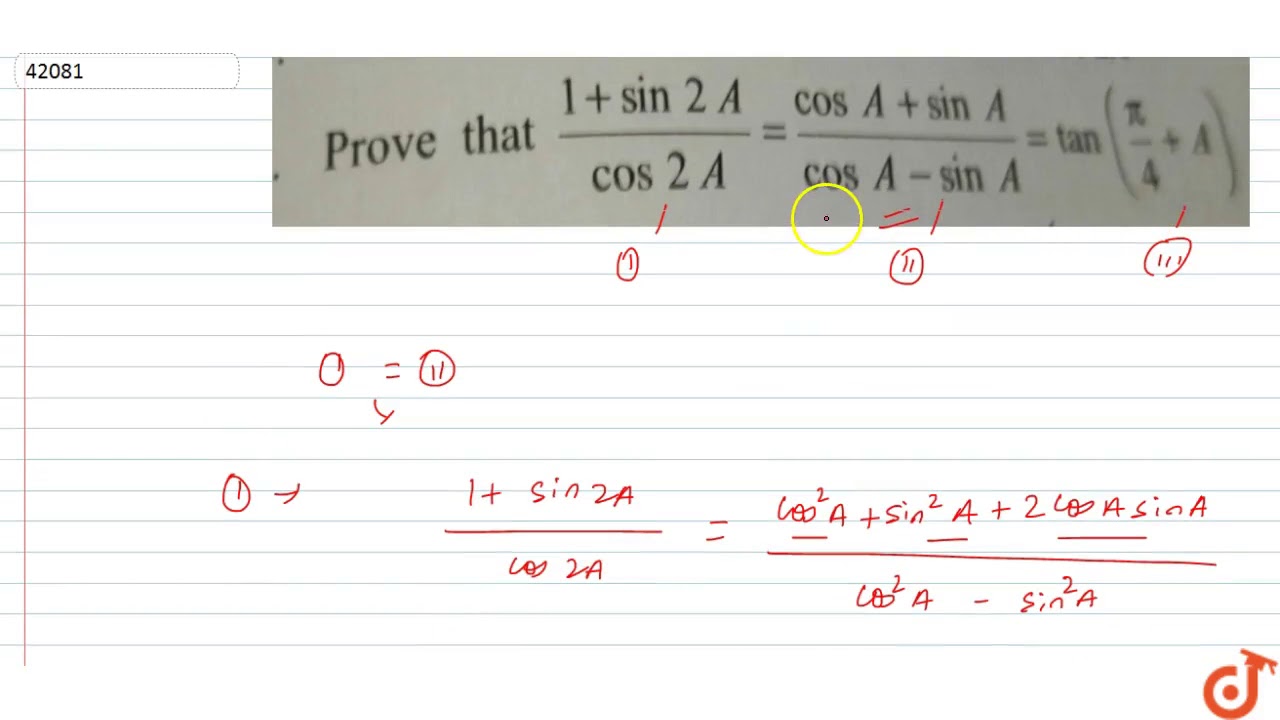 42081
Prove that (1 + sin 2A)/(cos 2A) = (cos A + sin A)/(cos A − sin A) = tan(π/4 + A)
= 
(I) (II) (III)
(I) = (II)
(I) → (1 + sin 2A)/(cos 2A) = (cos²A + sin²A + 2 cos A sin A)/(cos²A − sin²A)